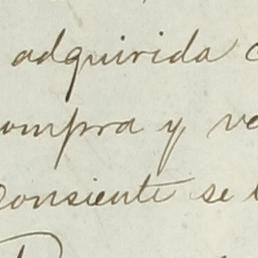 adquirida
ompra y ve
consiente se